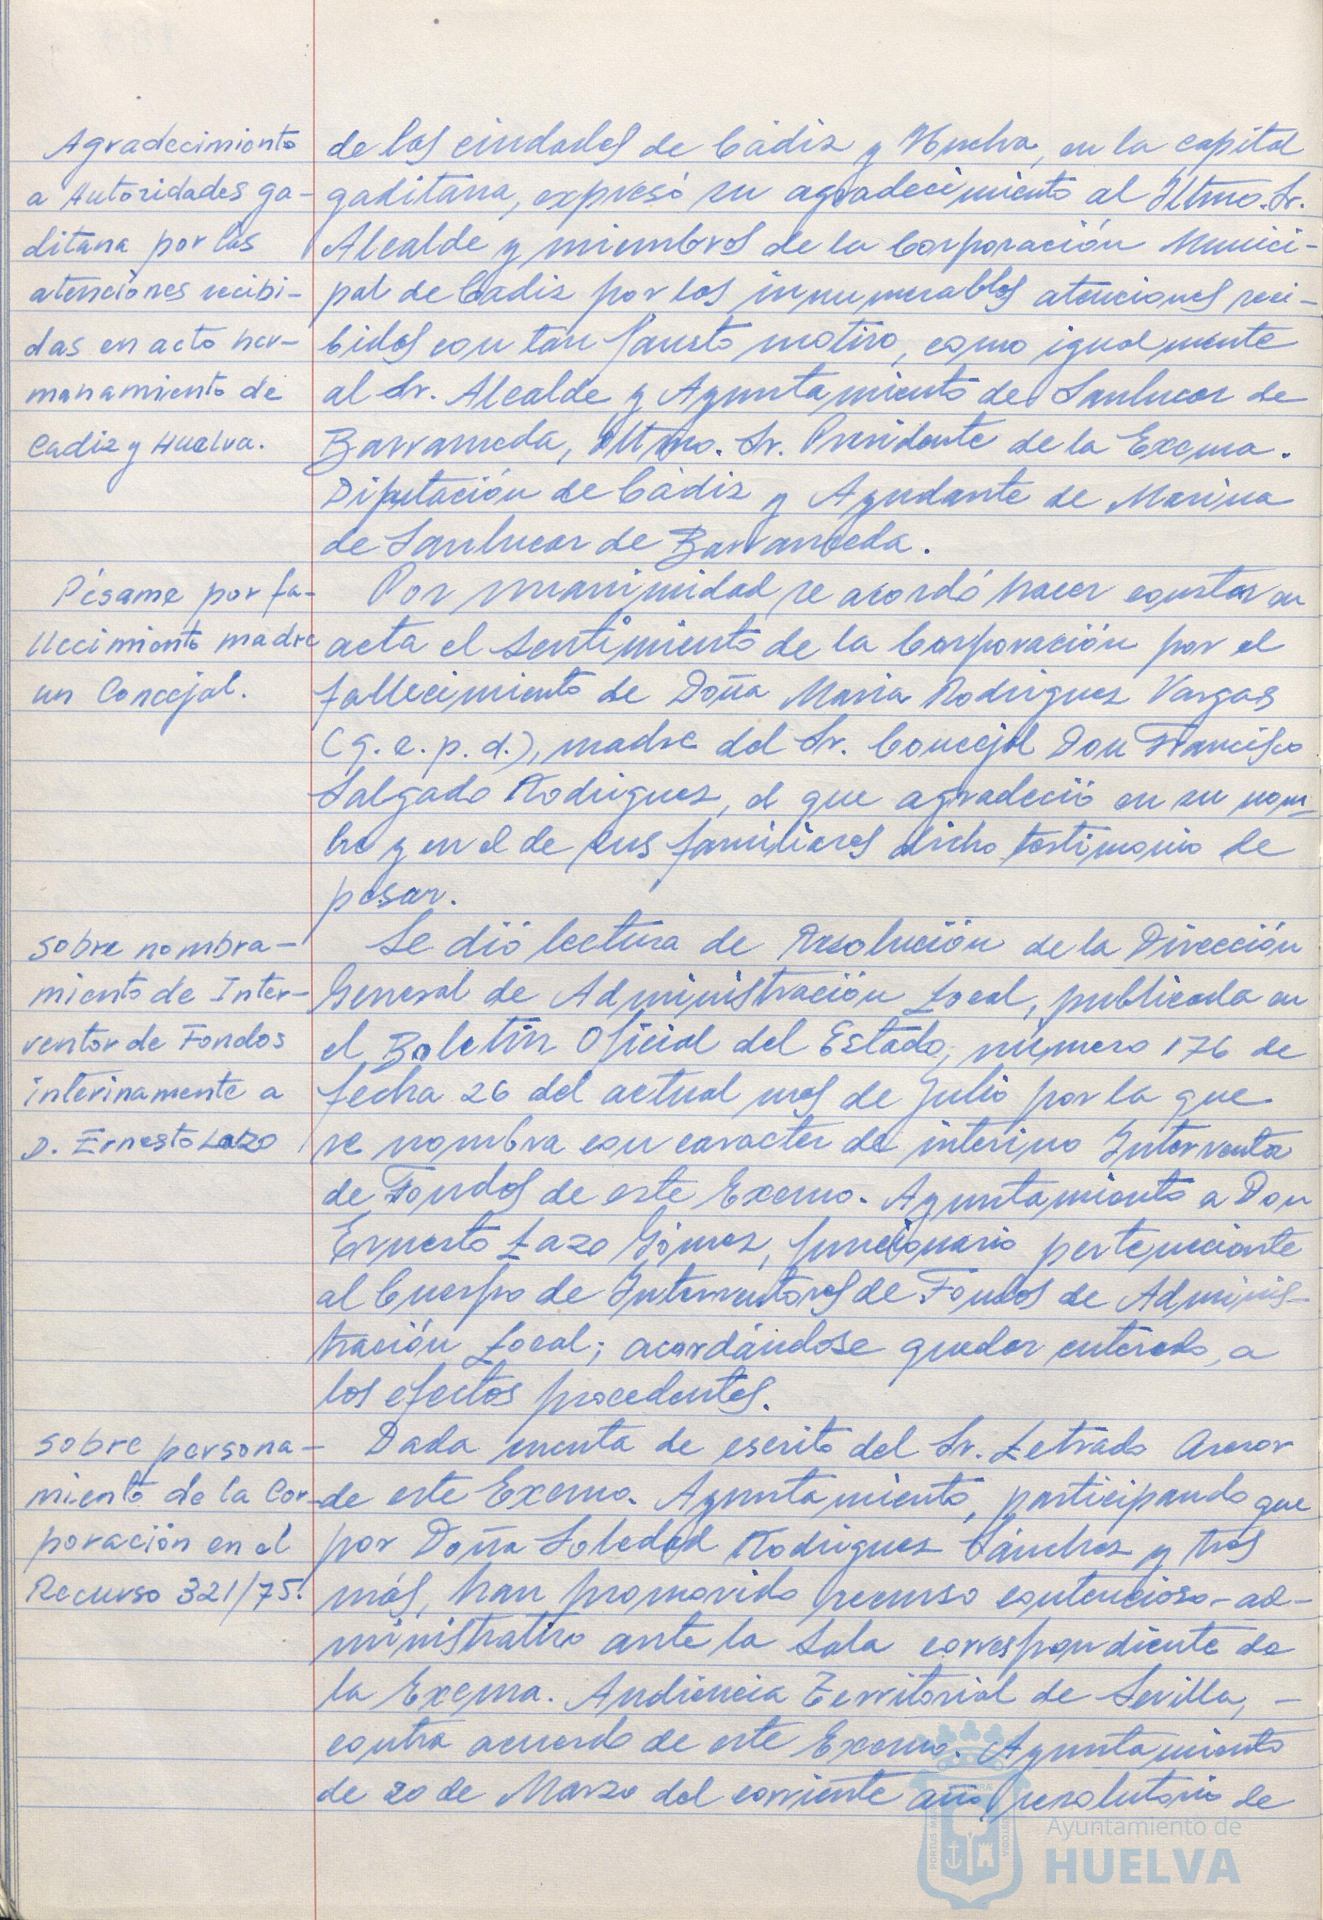 Agradecimiento
a Autoridades ga-
ditana por las
atenciones recibi-
das en acto her-
manamiento de
Cadiz y Huelva.
de las ciudades de Cádiz y Huelva, en la capital
gaditana, expresó su agradecimiento al Iltmo. Sr.
Alcalde y miembros de la Corporación Munici-
pal de Cadiz por las innumerables atenciones reci-
bidas con tan fausto motivo, como igualmente
al Sr. Alcalde y Ayuntamiento de Sanlucar de
Barrameda, Iltmo. Sr. Presidente de la Excma.
Diputación de Cádiz y Ayudante de Marina
de Sanlucar de Barrameda.
Pésame por fa-
llecimiento madre
un Concejal.
Por unanimidad se acordó hacer constar en
acta el sentimiento de la Corporación por el
fallecimiento de Doña Maria Rodriguez Vargas
(q. e. p. d.), madre del Sr. Concejal Don Francisco
Salgado Rodriguez, el que agradeció en su nom-
bre y en el de sus familiares dicho testimonio de
pesar.
Sobre nombra-
miento de Inter-
ventor de Fondos
interinamente a
D. Ernesto Lazo
Se dió lectura de Resolución de la Dirección
General de Administración Local, publicada en
el Boletín Oficial del Estado, número 176 de
fecha 26 del actual mes de Julio por la que
se nombra con caracter de interino Interventor
de Fondos de este Excmo. Ayuntamiento a Don
Ernesto Lazo Gómez, funcionario perteneciente
al Cuerpo de Interventores de Fondos de Adminis-
tración Local; acordándose quedar enterado, a
los efectos procedentes.
Sobre persona-
miento de la Cor-
poración en el
Recurso 321/75.
Dada cuenta de escrito del Sr. Letrado Asesor
de este Excmo. Ayuntamiento, participando que
por Doña Soledad Rodriguez Sánchez y tres
más, han promovido recurso contencioso-ad-
ministrativo ante la Sala correspondiente de
la Excma. Audiencia Territorial de Sevilla, -
contra acuerdo de este Excmo. Ayuntamiento
de 20 de Marzo del corriente año, resolutorio de
Ayuntamiento de
HUELVA